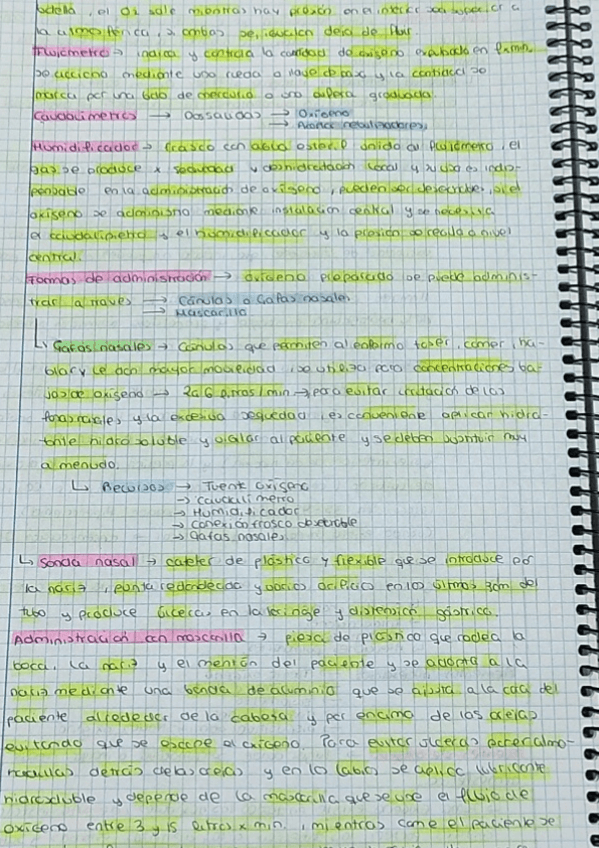 el O2 sale mientras hay presión en el interior superior a
la atmosférica, si ambas se igualan deja de fluir
Fluxómetro → indica y controla la cantidad de oxígeno en l x min,
se acciona mediante una rueda o llave de paso y la cantidad se
marca por una bola de mercurio o una esfera graduada.
Caudalímetros → → Oxígeno
→
Humidificador → frasco con agua estéril unido al fluxómetro, el
gas se produce x sequedad y deshidratación local y su uso es indis-
pensable en la administración de oxígeno, pueden ser desechables, si el
oxígeno se administra mediante instalación central y se necesita
el caudalímetro, el humidificador y la presión se regula a nivel
central.
Formas de administración → oxígeno preparado se puede adminis-
trar a traves → Cánulas o Gafas nasales
→ Mascarilla
↳ Gafas nasales → Cánulas que permiten al enfermo toser, comer, ha-
blar y le dan mayor movilidad, se utiliza para concentraciones ba-
jas de oxígeno → 2 a 6 litros/min → para evitar irritación de las
fosas nasales y la excesiva sequedad, es conveniente aplicar hidra-
tante hidrosoluble y al paciente y se deben sustituir muy
a menudo.
↳ Recursos → Fuente oxígeno
→ Caudalímetro
→ Humidificador
→ Conexión frasco
→ Gafas nasales
↳ Sonda nasal → catéter de plástico y flexible que se introduce por
la nariz, punta redondeada y varios orificios en los últimos 3cm del
tubo y produce úlceras en la laringe y distensión gástrica.
Administración con mascarilla → pieza de plástico que rodea la
boca, la nariz y el mentón del paciente y se adapta a la
nariz mediante una banda de aluminio que se ajusta a la cara del
paciente alrededor de la cabeza y por encima de las orejas
evitando que se escape el oxígeno. Para evitar úlceras poner almo-
hadillas detrás de las orejas y en lo labio se aplica lubricante
hidrosoluble y depende de la mascarilla que se use el flujo de
oxígeno entre 3 y 15 litros x min, mientras come el paciente se